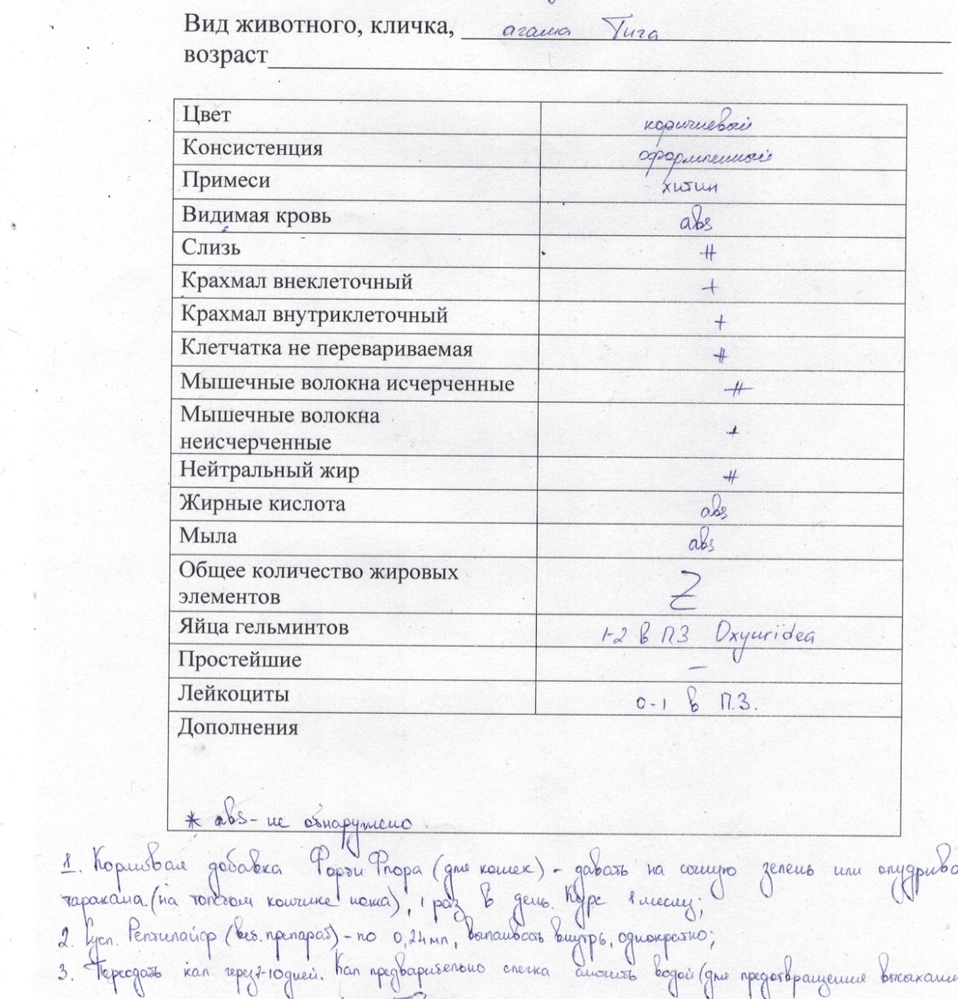 Вид животного, кличка, агама Тига
возраст
Цвет коричневый
Консистенция оформленный
Примеси хитин
Видимая кровь abs
Слизь ++
Крахмал внеклеточный +
Крахмал внутриклеточный +
Клетчатка не перевариваемая ++
Мышечные волокна исчерченные ++
Мышечные волокна
неисчерченные +
Нейтральный жир ++
Жирные кислота abs
Мыла abs
Общее количество жировых
элементов Z
Яйца гельминтов 1-2 в П.З Oxyuridea
Простейшие –
Лейкоциты 0-1 в П.З.
Дополнения
* abs - не обнаружено
1. Кормовая добавка Форти Флора (для кошек) - давать на сочную зелень или опудрива
таракана. (на толстом кончике ножа), 1 раз в день. Курс 1 месяц;
2. Сусп. Рептилайф (вет. препарат) - по 0,24 мл, выпаивать внутрь, однократно;
3. Пересдать кал через 7-10 дней. Кал предварительно слегка смочить водой (для предотвращение высыхани